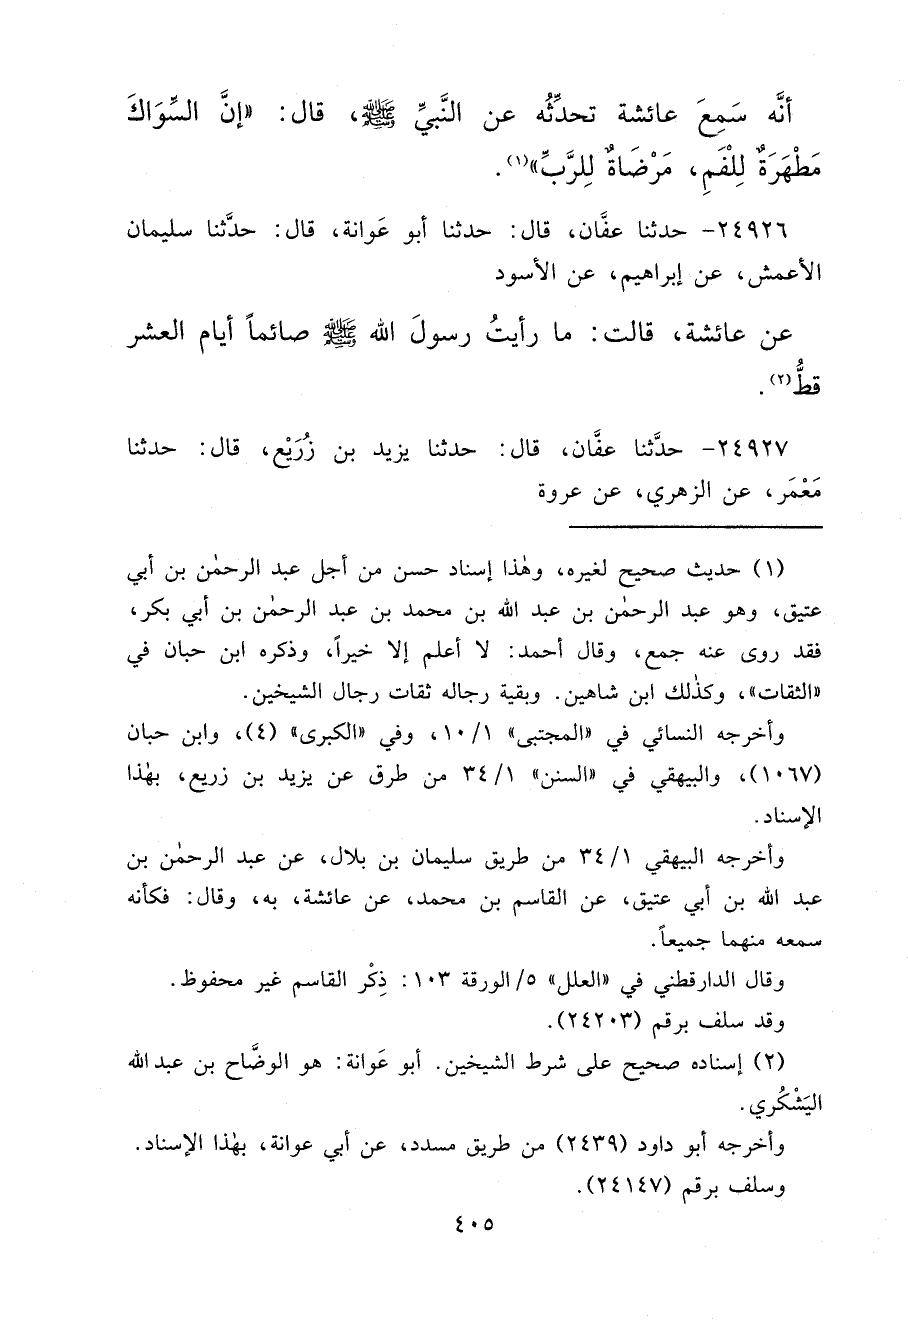 أنَّه سَمِعَ عائشة تحدِّثُه عن النَّبيِّ ﷺ، قال: «إنَّ السِّوَاكَ
مَطْهَرَةٌ لِلْفَمِ، مَرْضَاةٌ لِلرَّبِّ»(١).
٢٤٩٢٦- حدثنا عفَّان، قال: حدثنا أبو عَوانة، قال: حدَّثنا سليمان
الأعمش، عن إبراهيم، عن الأسود
عن عائشة، قالت: ما رأيتُ رسولَ الله ﷺ صائماً أيام العشر
قطُّ(٢).
٢٤٩٢٧- حدَّثنا عفَّان، قال: حدثنا يزيد بن زُرَيْع، قال: حدثنا
مَعْمَر، عن الزهري، عن عروة
(١) حديث صحيح لغيره، وهٰذا إسناد حسن من أجل عبد الرحمٰن بن أبي
عتيق، وهو عبد الرحمٰن بن عبد الله بن محمد بن عبد الرحمٰن بن أبي بكر،
فقد روى عنه جمع، وقال أحمد: لا أعلم إلا خيراً، وذكره ابن حبان في
«الثقات»، وكذٰلك ابن شاهين. وبقية رجاله ثقات رجال الشيخين.
وأخرجه النسائي في «المجتبى» ١٠/١، وفي «الكبرى» (٤)، وابن حبان
(١٠٦٧)، والبيهقي في «السنن» ٣٤/١ من طرق عن يزيد بن زريع، بهٰذا
الإسناد.
وأخرجه البيهقي ٣٤/١ من طريق سليمان بن بلال، عن عبد الرحمٰن بن
عبد الله بن أبي عتيق، عن القاسم بن محمد، عن عائشة، به، وقال: فكأنه
سمعه منهما جميعاً.
وقال الدارقطني في «العلل» ٥/الورقة ١٠٣: ذِكْر القاسم غير محفوظ.
وقد سلف برقم (٢٤٢٠٣).
(٢) إسناده صحيح على شرط الشيخين. أبو عَوانة: هو الوضَّاح بن عبد الله
اليَشْكُري.
وأخرجه أبو داود (٢٤٣٩) من طريق مسدد، عن أبي عوانة، بهٰذا الإسناد.
وسلف برقم (٢٤١٤٧).
٤٠٥